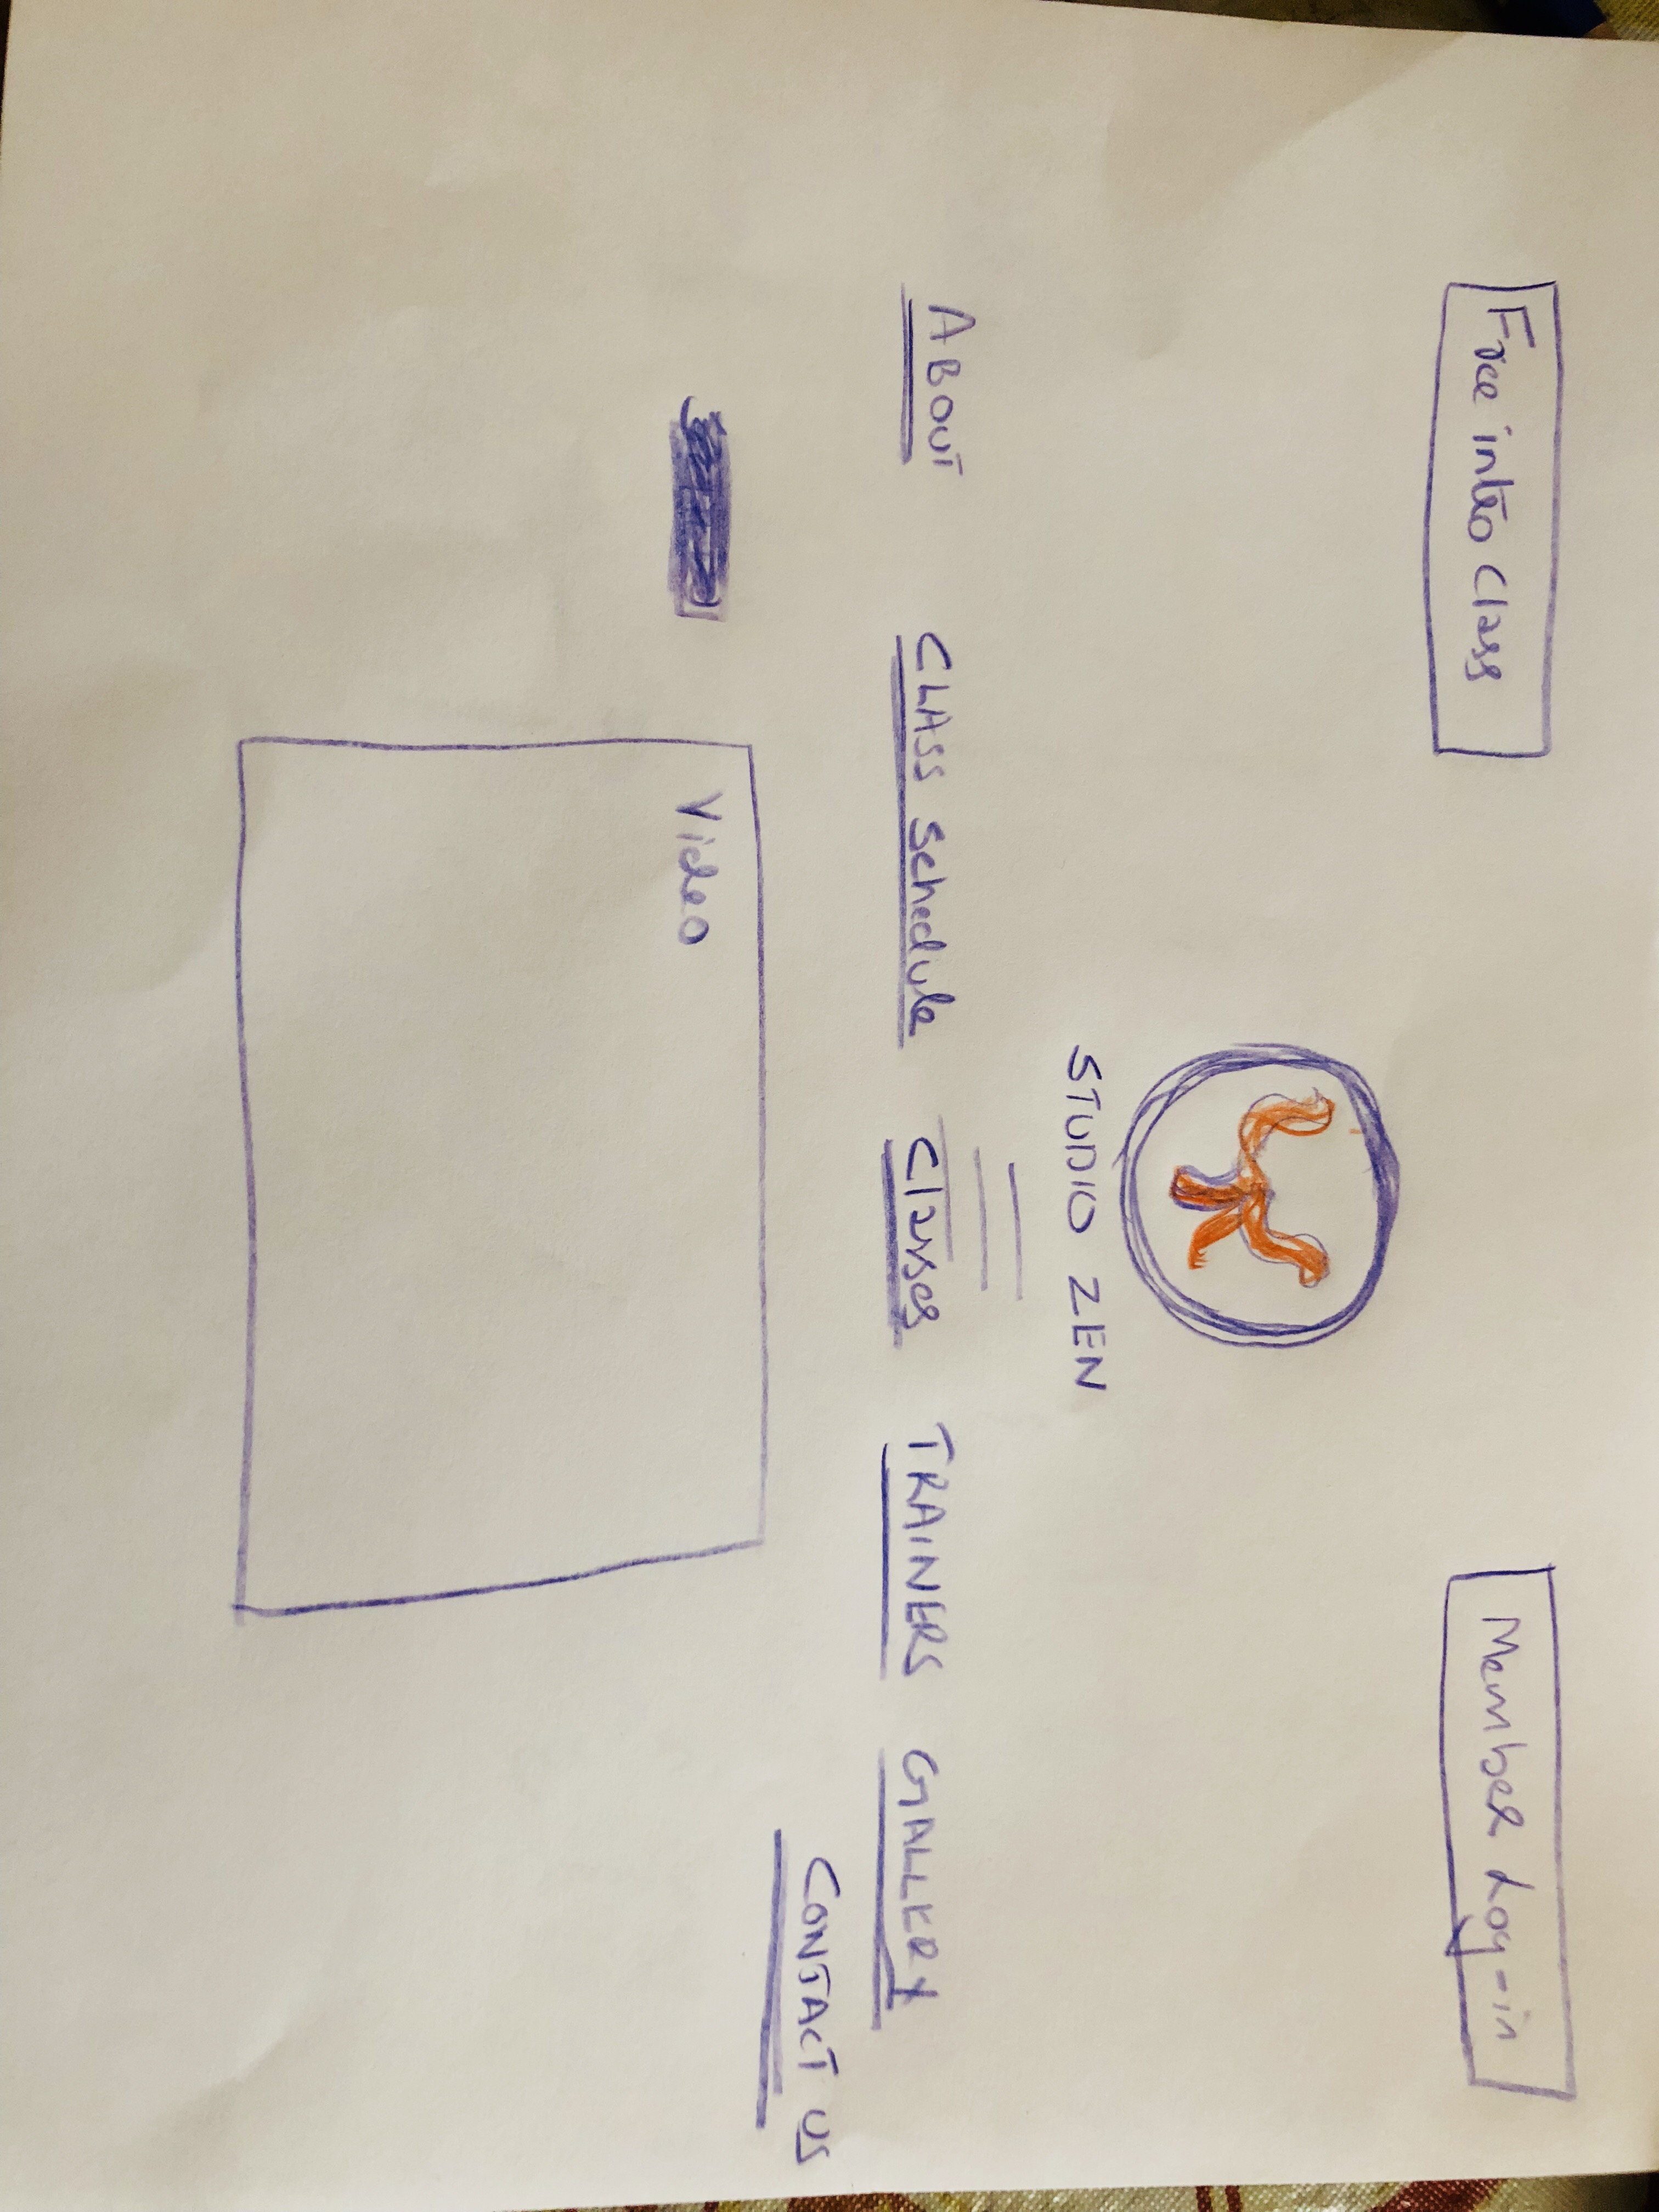 Free intro Class
Member Log-in
STUDIO ZEN
ABOUT CLASS Schedule Classes TRAINERS GALLERY
CONTACT US
Video